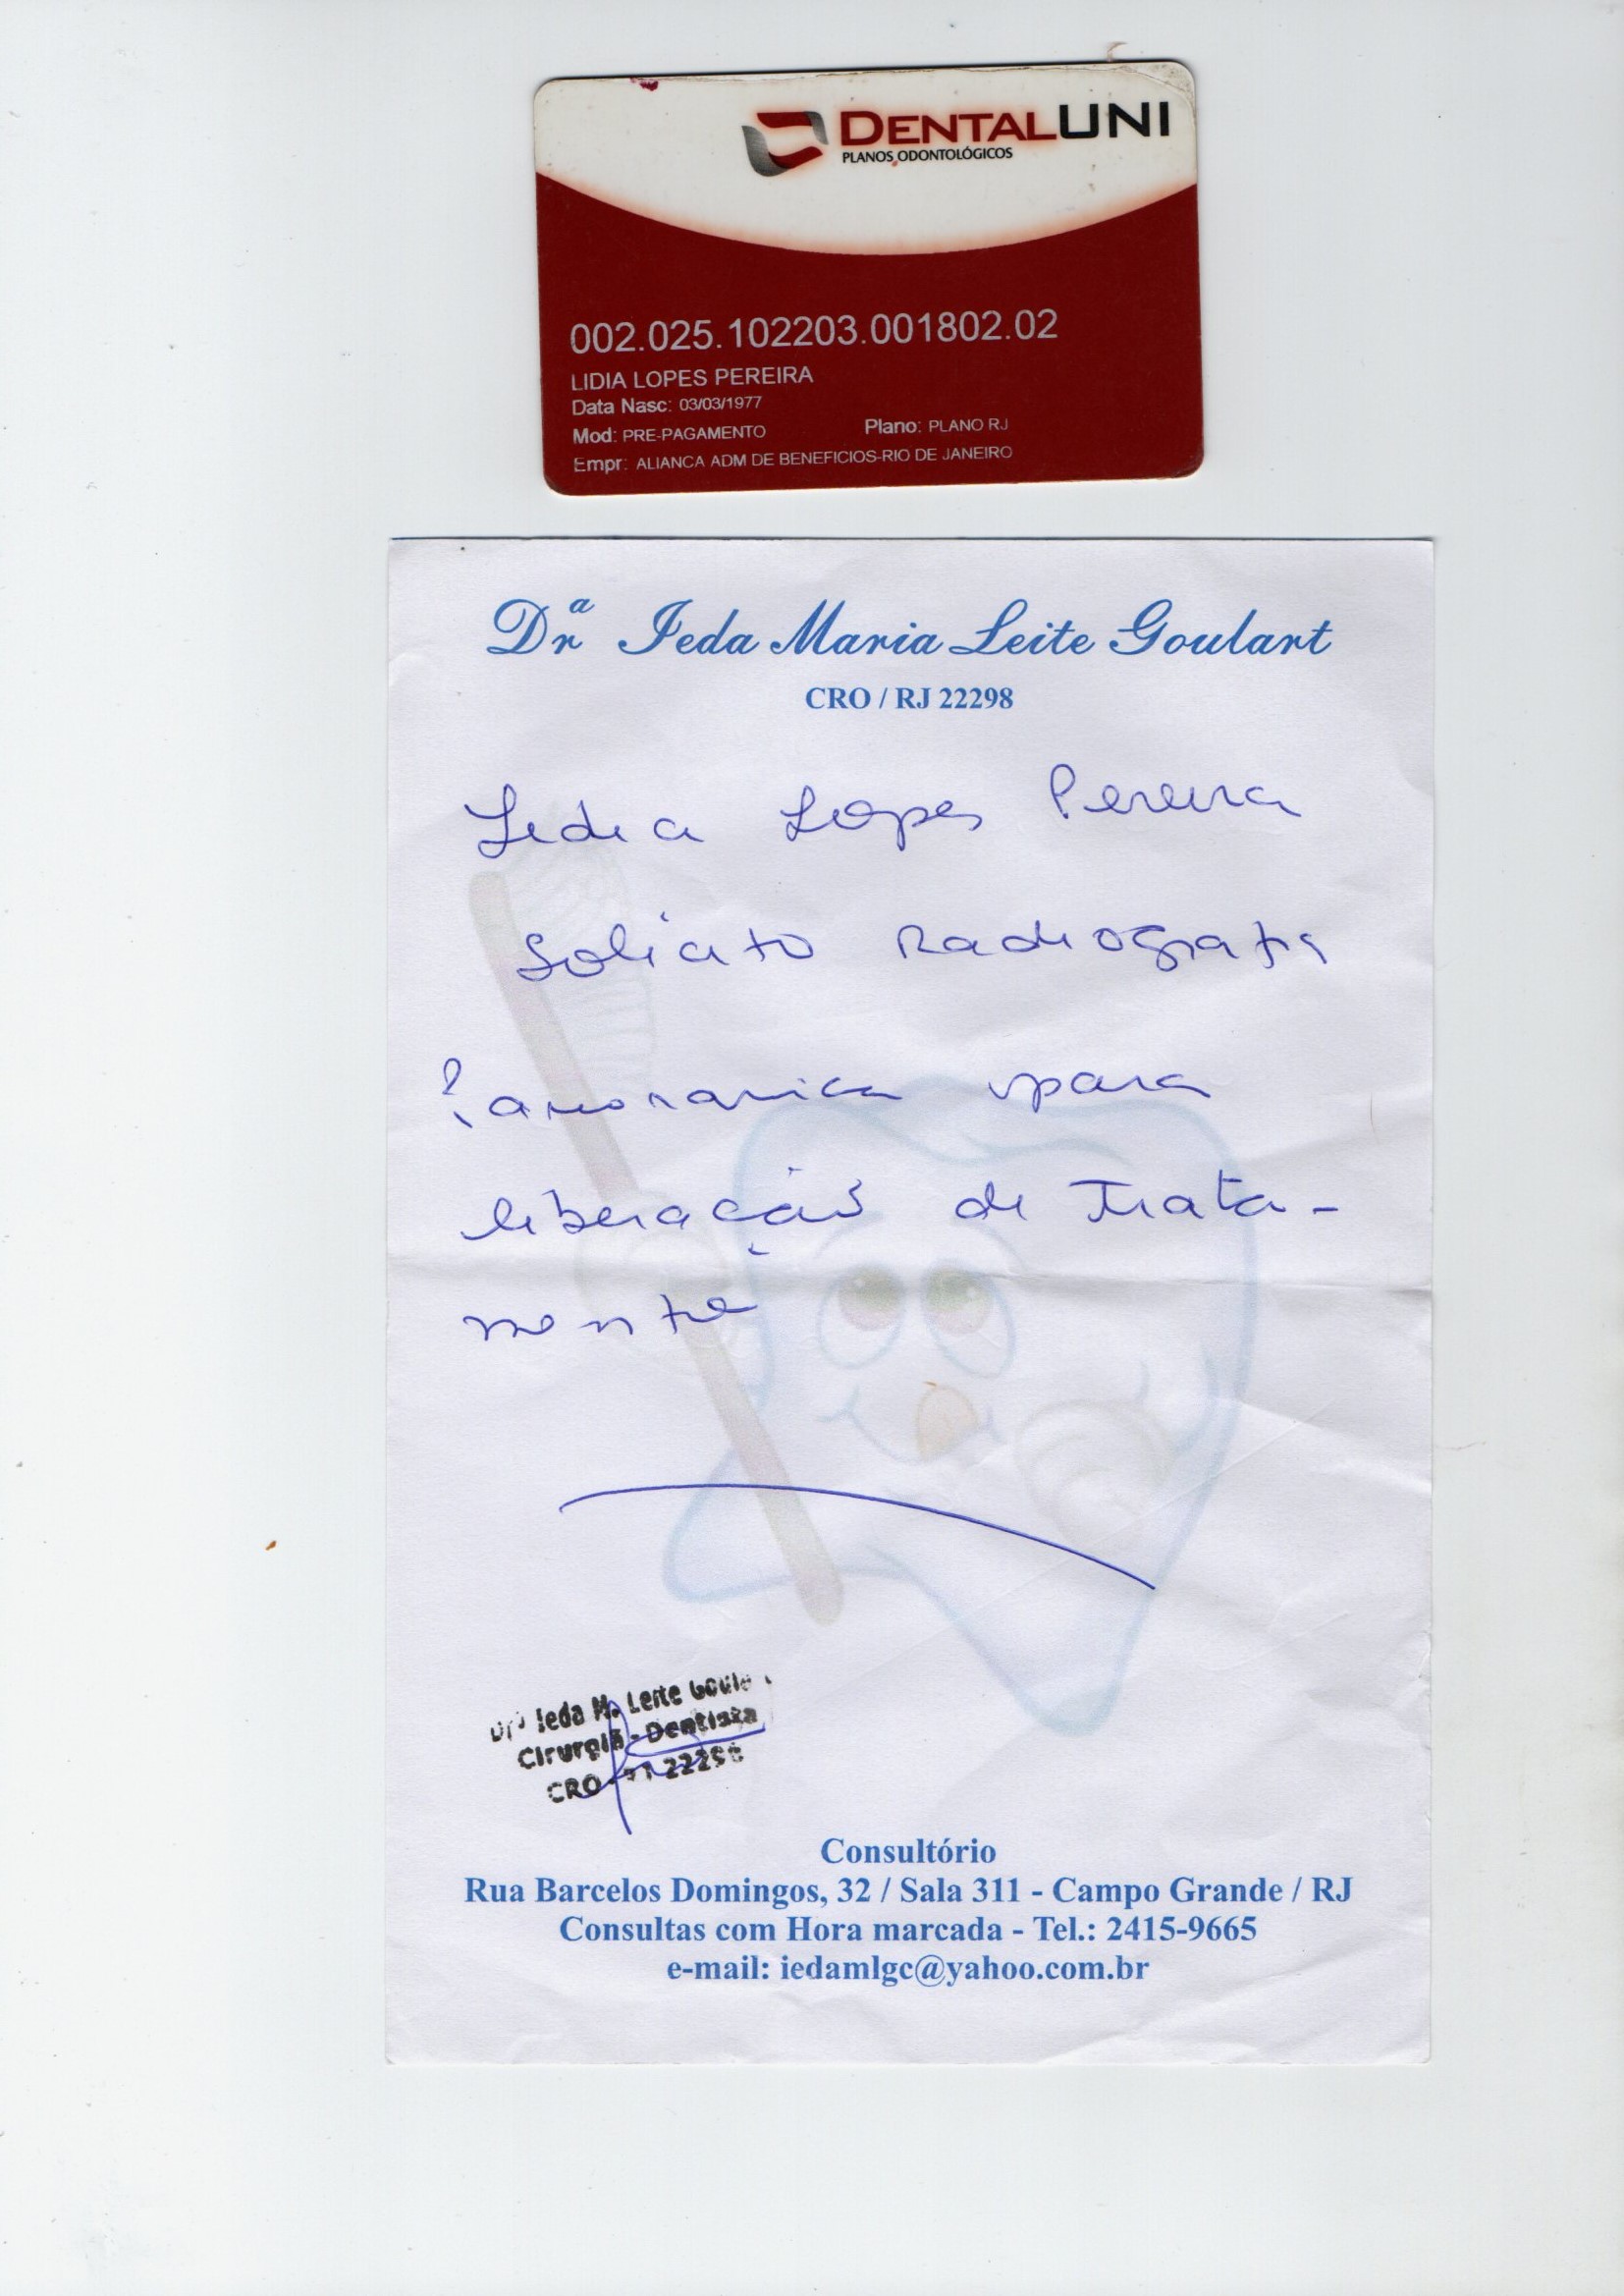 DENTALUNI
PLANOS ODONTOLÓGICOS
002.025.102203.001802.02
LIDIA LOPES PEREIRA
Data Nasc: 03/03/1977
Mod: PRE-PAGAMENTO Plano: PLANO RJ
Empr: ALIANCA ADM DE BENEFICIOS-RIO DE JANEIRO
Drª Ieda Maria Leite Goulart
CRO / RJ 22298
Lidia Lopes Pereira
Solicito Radiografia
Panoramica para
liberação de Trata-
mento
Drª Ieda M. Leite Goula
Cirurgiã - Dentista
CRO-RJ 22298
Consultório
Rua Barcelos Domingos, 32 / Sala 311 - Campo Grande / RJ
Consultas com Hora marcada - Tel.: 2415-9665
e-mail: iedamlgc@yahoo.com.br